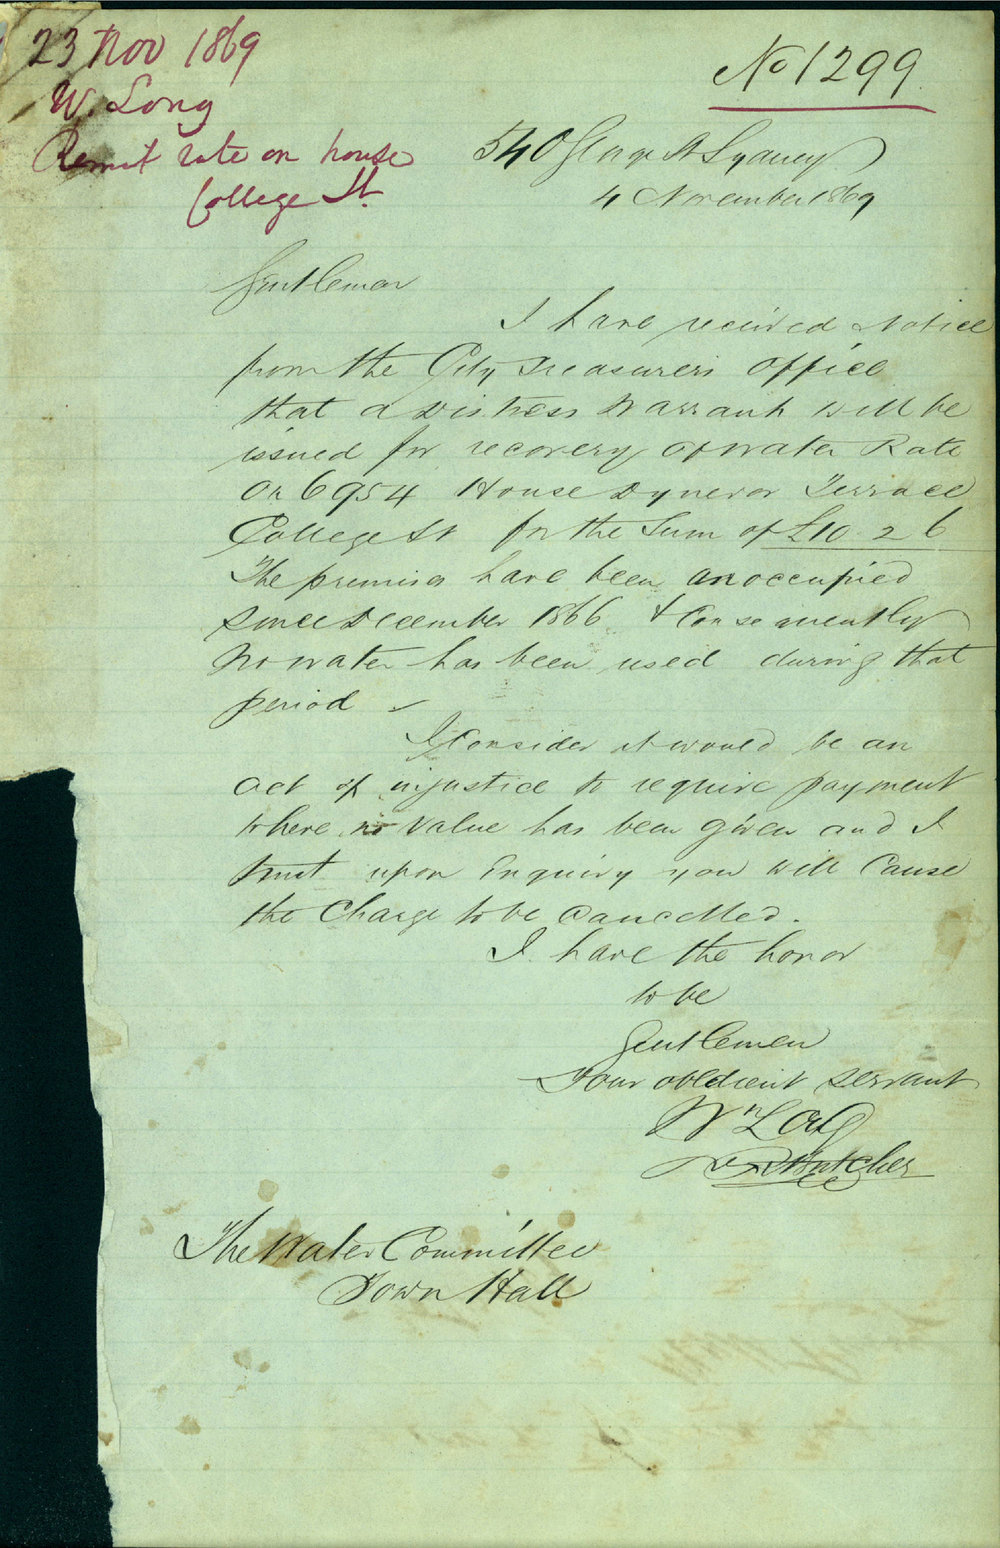 23 Nov 1869
W. Long
Remit rate on house
College St.
No 1299
540 George St Sydney
4 November 1869
Gentlemen
I have received Notice
from the City Treasurers Office
that a Distress Warrant will be
issued for recovery of Water Rate
on 6954 House Dynevor Terrace
College St for the Sum of £10. 2. 6
The premises have been unoccupied
since December 1866 & Consequently
No water has been used during that
period
I Consider it would be an
act of injustice to require payment
where no Value has been given and I
trust upon Enquiry you will Cause
the Charge to be Cancelled.
I have the honor
to be
Gentlemen
Your obedient servant
Wm Long
Butcher
The Water Committee
Town Hall